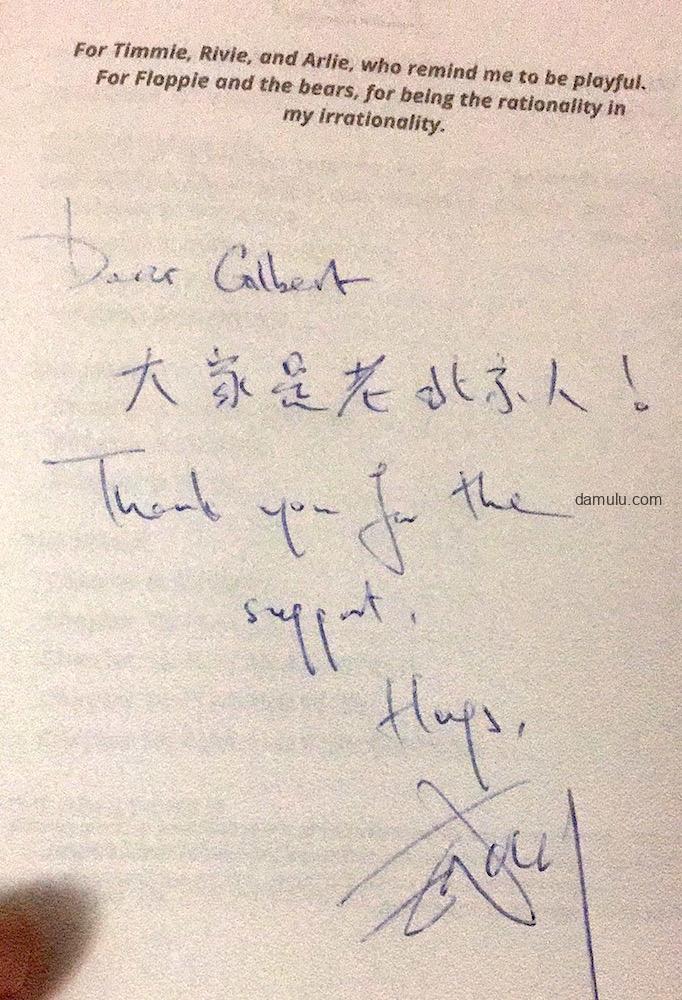 For Timmie, Rivie, and Arlie, who remind me to be playful.
For Floppie and the bears, for being the rationality in
my irrationality.
Dear Galbert
大家是老北京人！
Thank you for the
damulu.com
support.
Hugs,